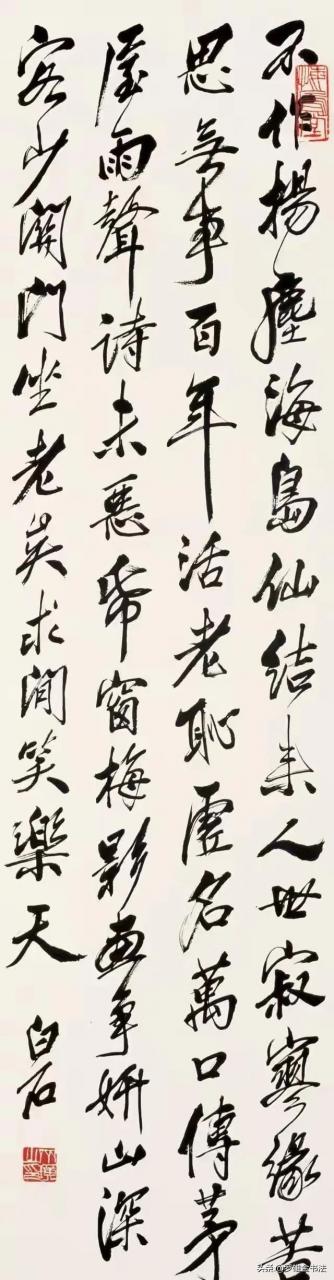 不作揚塵海島仙結來人世寂寥緣苦
思無事百年活老恥虛名萬口傳茅
屋雨聲詩未惡帋窗梅影畫爭妍山深
客少關門坐老矣求閒笑樂天
白石
头条 书法